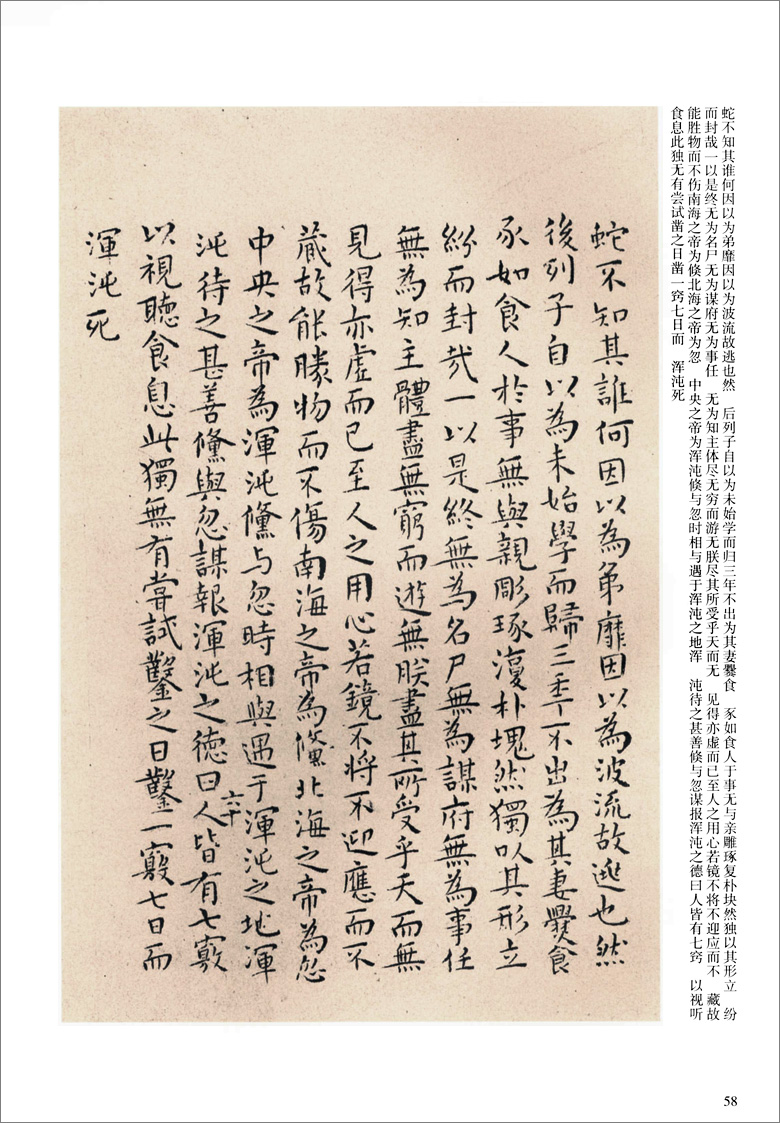 蛇不知其谁何因以为弟靡因以为波流故逃也然　后列子自以为未始学而归三年不出为其妻爨食　豕如食人于事无与亲雕琢复朴块然独以其形立　纷
而封哉一以是终无为名尸无为谋府无为事任　无为知主体尽无穷而游无朕尽其所受乎天而无　见得亦虚而已至人之用心若镜不将不迎应而不　藏故
能胜物而不伤南海之帝为倏北海之帝为忽　中央之帝为浑沌倏与忽时相与遇于浑沌之地浑　沌待之甚善倏与忽谋报浑沌之德曰人皆有七窍　以视听
食息此独无有尝试凿之日凿一窍七日而　浑沌死
蛇不知其誰何因以為弟靡因以為波流故逃也然
後列子自以為未始學而歸三年不出為其妻爨食
豕如食人於事無與親彫琢復朴塊然獨以其形立
紛而封哉一以是終無為名尸無為謀府無為事任
無為知主體盡無窮而遊無朕盡其所受乎天而無
見得亦虛而已至人之用心若鏡不將不迎應而不
藏故能勝物而不傷南海之帝為儵北海之帝為忽
中央之帝為渾沌儵与忽時相與遇于渾沌之地渾
沌待之甚善儵與忽謀報渾沌之德曰人皆有七竅
六十
以視聽食息此獨無有嘗試鑿之日鑿一竅七日而
渾沌死
58